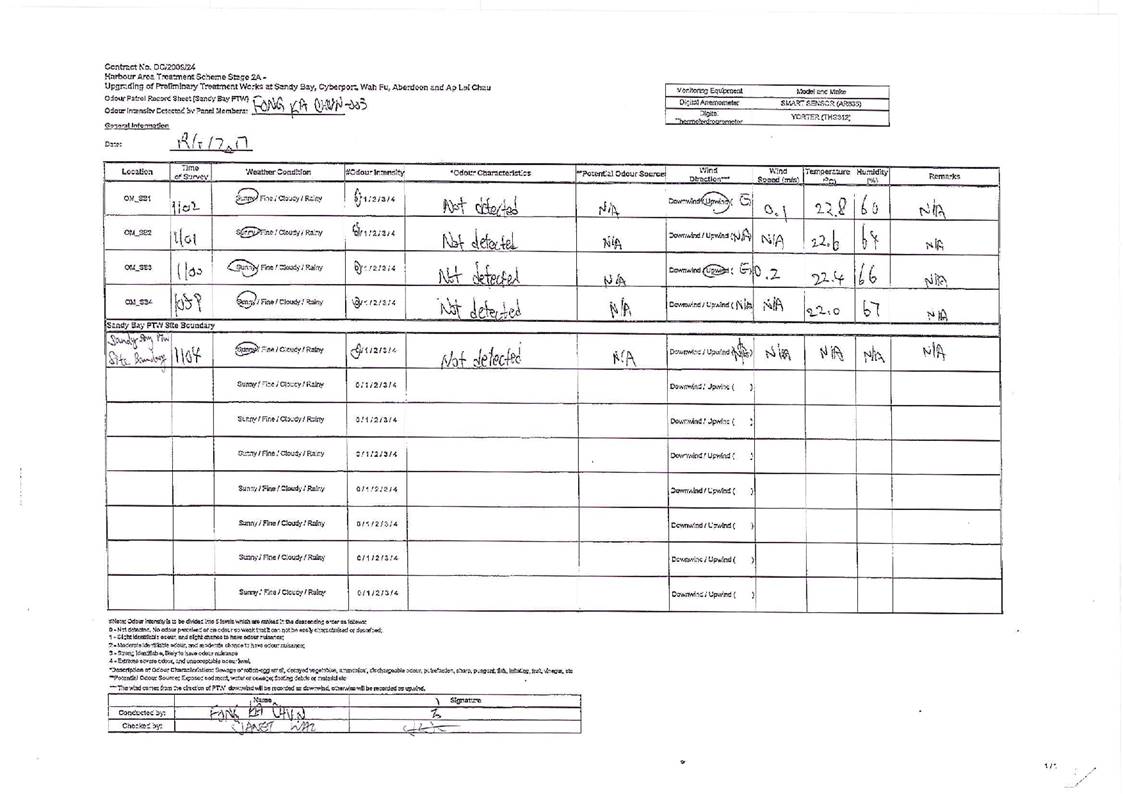 Contract No. DC/2009/24
Harbour Area Treatment Scheme Stage 2A -
Upgrading of Preliminary Treatment Works at Sandy Bay, Cyberport, Wah Fu, Aberdeen and Ap Lei Chau
Odour Patrol Record Sheet (Sandy Bay PTW)
Odour Intensity Detected by Panel Members: FONG KA CHUN
General Information
Date:
Monitoring Equipment Model and Make
Digital Anemometer SMART SENSOR (AR836)
Digital Thermohydrogrometer
Location Time of Survey Weather Condition #Odour Intensity *Odour Characteristics **Potential Odour Source Wind Direction*** Wind Speed (m/s) Temperature (°C) Humidity (%) Remarks
OM_SB1 1102 Sunny / Fine / Cloudy / Rainy 0/1/2/3/4 Not detected N/A Downwind / Upwind ( E 0.1 22.8 60 N/A
OM_SB2 1101 Sunny / Fine / Cloudy / Rainy 0/1/2/3/4 Not detected N/A Downwind / Upwind (N/A) N/A 22.6 N/A
OM_SB3 1100 Sunny / Fine / Cloudy / Rainy 0/1/2/3/4 Not detected N/A Downwind / Upwind ( E 0.2 22.4 66 N/A
OM_SB4 1059 Sunny / Fine / Cloudy / Rainy 0/1/2/3/4 Not detected N/A Downwind / Upwind ( N/A N/A 22.0 67 N/A
Sandy Bay PTW Site Boundary
Sandy Bay PTW Site Boundary 1104 Sunny / Fine / Cloudy / Rainy 0/1/2/3/4 Not detected N/A Downwind / Upwind (N/A) N/A N/A N/A N/A
Sunny / Fine / Cloudy / Rainy 0/1/2/3/4 Downwind / Upwind ( )
Sunny / Fine / Cloudy / Rainy 0/1/2/3/4 Downwind / Upwind ( )
Sunny / Fine / Cloudy / Rainy 0/1/2/3/4 Downwind / Upwind ( )
Sunny / Fine / Cloudy / Rainy 0/1/2/3/4 Downwind / Upwind ( )
Sunny / Fine / Cloudy / Rainy 0/1/2/3/4 Downwind / Upwind ( )
Sunny / Fine / Cloudy / Rainy 0/1/2/3/4 Downwind / Upwind ( )
Sunny / Fine / Cloudy / Rainy 0/1/2/3/4 Downwind / Upwind ( )
#Note: Odour intensity is to be divided into 5 levels which are ranked in the descending order as follows:
0 - Not detected. No odour perceived or an odour so weak that it can not be easily characterised or described;
1 - Slight identifiable odour, and slight chance to have odour nuisance;
2 - Moderate identifiable odour, and moderate chance to have odour nuisance;
3 - Strong identifiable, likely to have odour nuisance
4 - Extreme severe odour, and unacceptable odour level.
*Description of Odour Characteristics: Sewage or rotten-egg smell, decayed vegetables, ammonical, dischargeable odour, putrefaction, sharp, pungent, fish, irritating, fruit, vinegar, etc
**Potential Odour Source: Exposed sediment, water or sewage; floating debris or material etc
*** The wind comes from the direction of PTW downwind will be recorded as downwind, otherwise will be recorded as upwind.
Name Signature
Conducted by: FONG KA CHUN
Checked by: JANET
1/1